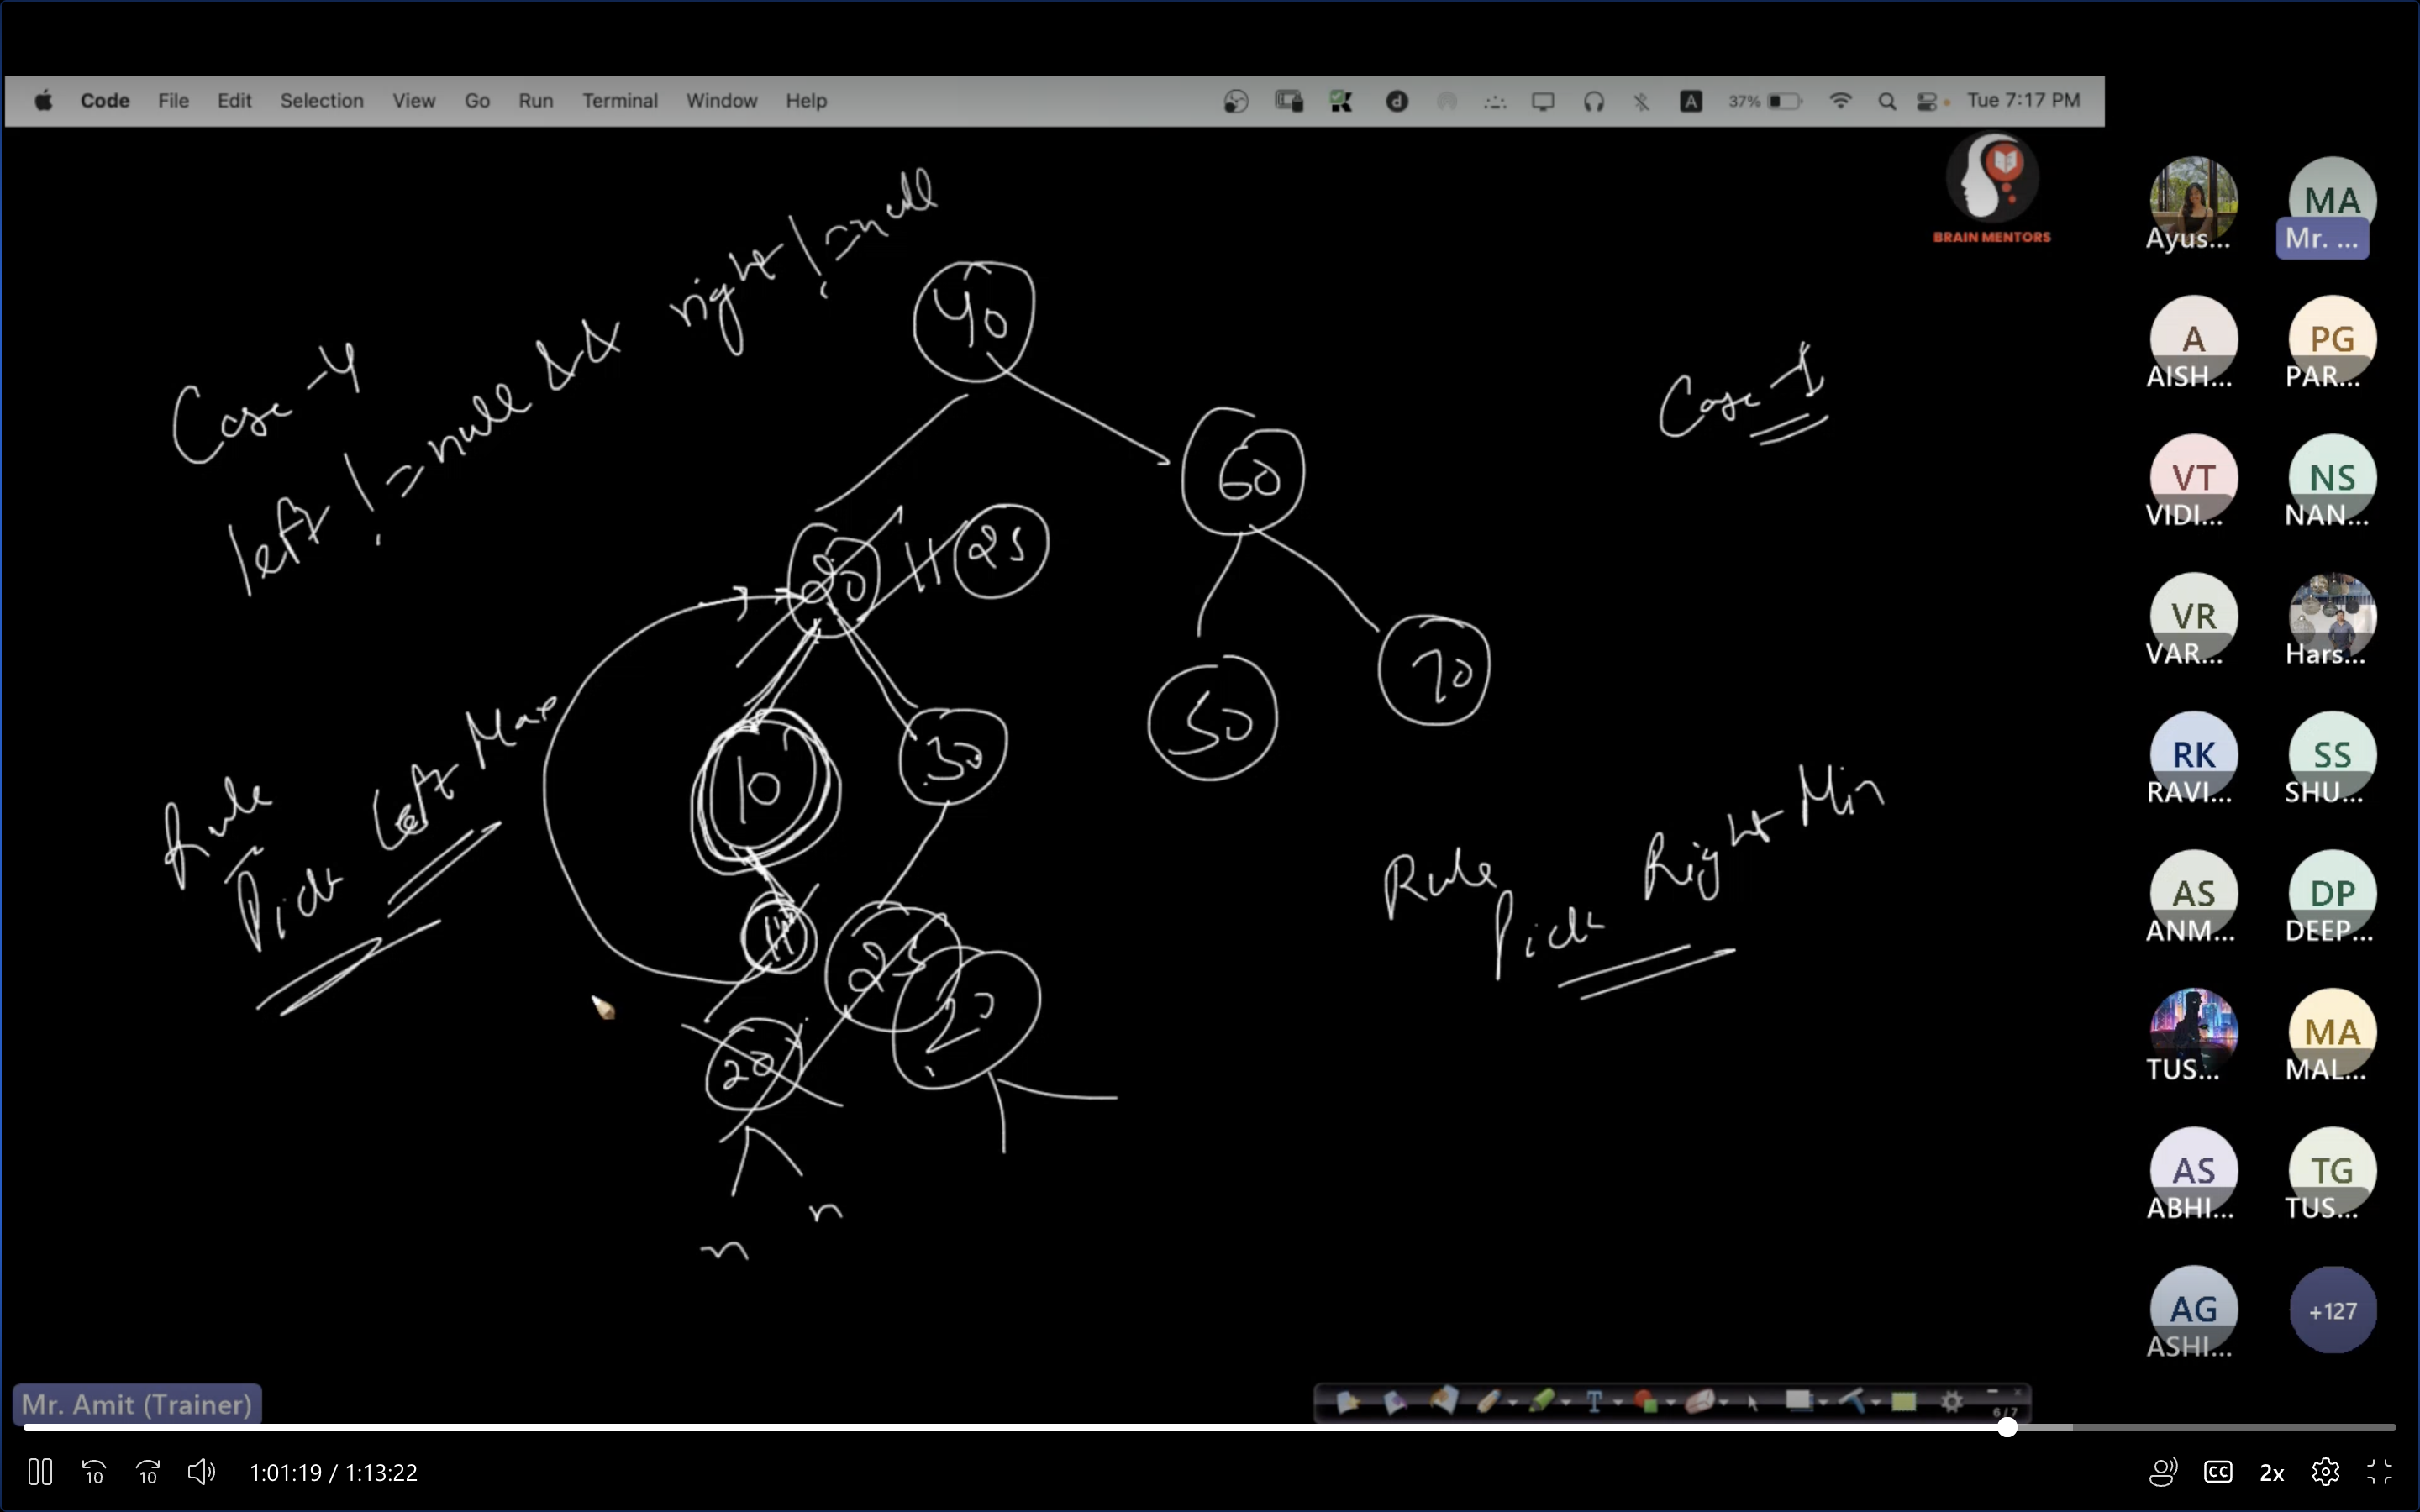 Code File Edit Selection View Go Run Terminal Window Help 37% Tue 7:17 PM
BRAIN MENTORS
Case-4
left != null && right != null
40
Case-1
60
20 11 25
10
30
50
70
Rule
Pick Left Max
Rule
Pick Right Min
11
25
20
20
n
n
Ayus...
MA
Mr. ...
A
AISH...
PG
PAR...
VT
VIDI...
NS
NAN...
VR
VAR...
Hars...
RK
RAVI...
SS
SHU...
AS
ANM...
DP
DEEP...
TUS...
MA
MAL...
AS
ABHI...
TG
TUS...
AG
ASHI...
+127
Mr. Amit (Trainer)
6/7
10 10 1:01:19 / 1:13:22 CC 2x